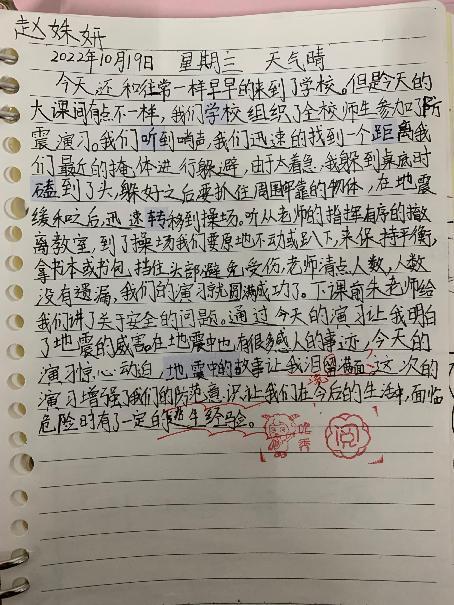 赵姝妍
2022年10月19日 星期三 天气晴
今天还和往常一样早早的来到了学校。但是今天的
大课间有点不一样，我们学校组织了全校师生参加了防
震演习。我们听到哨声，我们迅速的找到一个距离我
们最近的掩体进行躲避，由于大着急，我躲到桌底时
磕到了头，躲好之后要抓住周围牢靠的物体，在地震
缓和之后，迅速转移到操场。听从老师的指挥有序的撤
离教室，到了操场我们要原地不动或趴下，来保持平衡，
拿书本或书包挡住头部避免受伤，老师清点人数，人数
没有遗漏，我们的演习就圆满成功了。下课前朱老师给
我们讲了关于安全的问题。通过今天的演习让我明白
了地震的威害。在地震中也有很多感人的事迹，今天的
演习惊心动迫，地震中的故事让我泪留满面这次的
演习增强我们的防范意识让我们在今后的生活中，面临
危险时有了一定的逃生经验。
优秀
阅